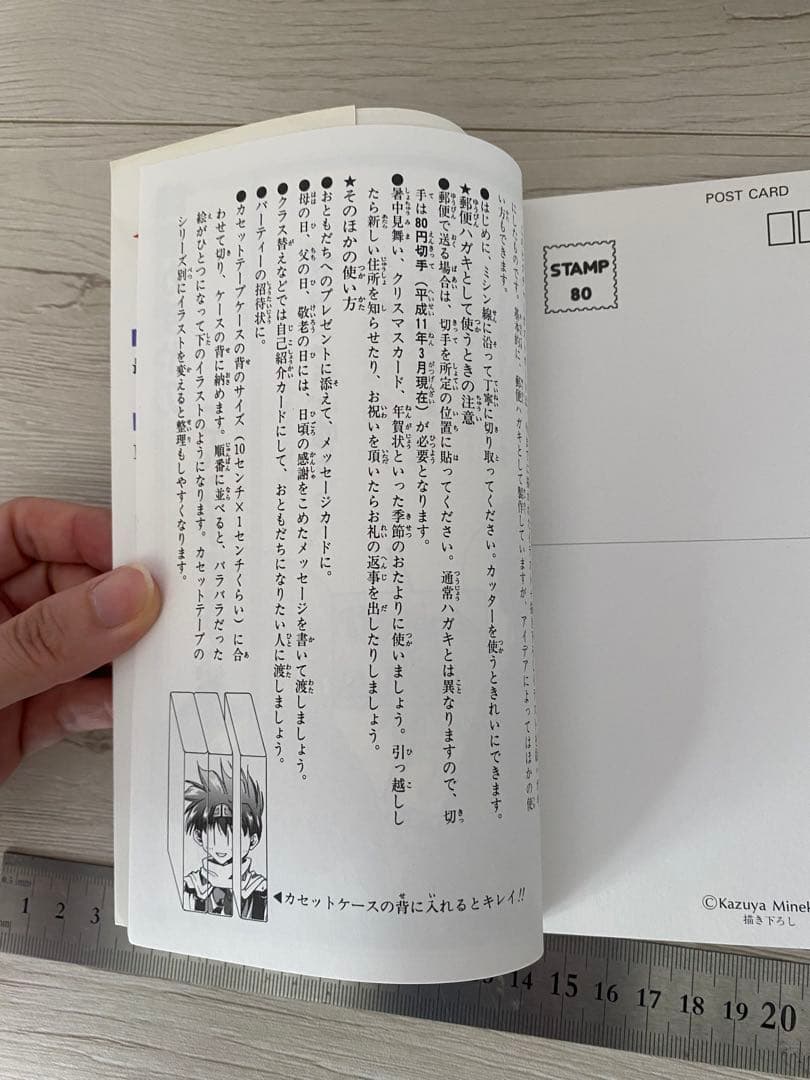 にしたものです。基本的に、郵便ハガキとして製作していますが、アイデアによってはほかの使
い方もできます。
●はじめに、ミシン線に沿って丁寧に切り取ってください。カッターを使うときれいにできます。
★郵便ハガキとして使うときの注意
●郵便で送る場合は、切手を所定の位置に貼ってください。通常ハガキとは異なりますので、切
手は80円切手（平成11年3月現在）が必要となります。
●暑中見舞い、クリスマスカード、年賀状といった季節のおたよりに使いましょう。引っ越しし
たら新しい住所を知らせたり、お祝いを頂いたらお礼の返事を出したりしましょう。
★そのほかの使い方
●おともだちへのプレゼントに添えて、メッセージカードに。
●母の日、父の日、敬老の日には、日頃の感謝をこめたメッセージを書いて渡しましょう。
●クラス替えなどでは自己紹介カードにして、おともだちになりたい人に渡しましょう。
●パーティーの招待状に。
●カセットテープケースの背のサイズ（10センチ×1センチくらい）に合
わせて切り、ケースの背に納めます。順番に並べると、バラバラだった
絵がひとつになって下のイラストのようになります。カセットテープの
シリーズ別にイラストを変えると整理もしやすくなります。
◀カセットケースの背に入れるとキレイ!!
POST CARD
STAMP
80
©Kazuya Minek
描き下ろし
1 2 3 13 14 15 16 17 18 19 20